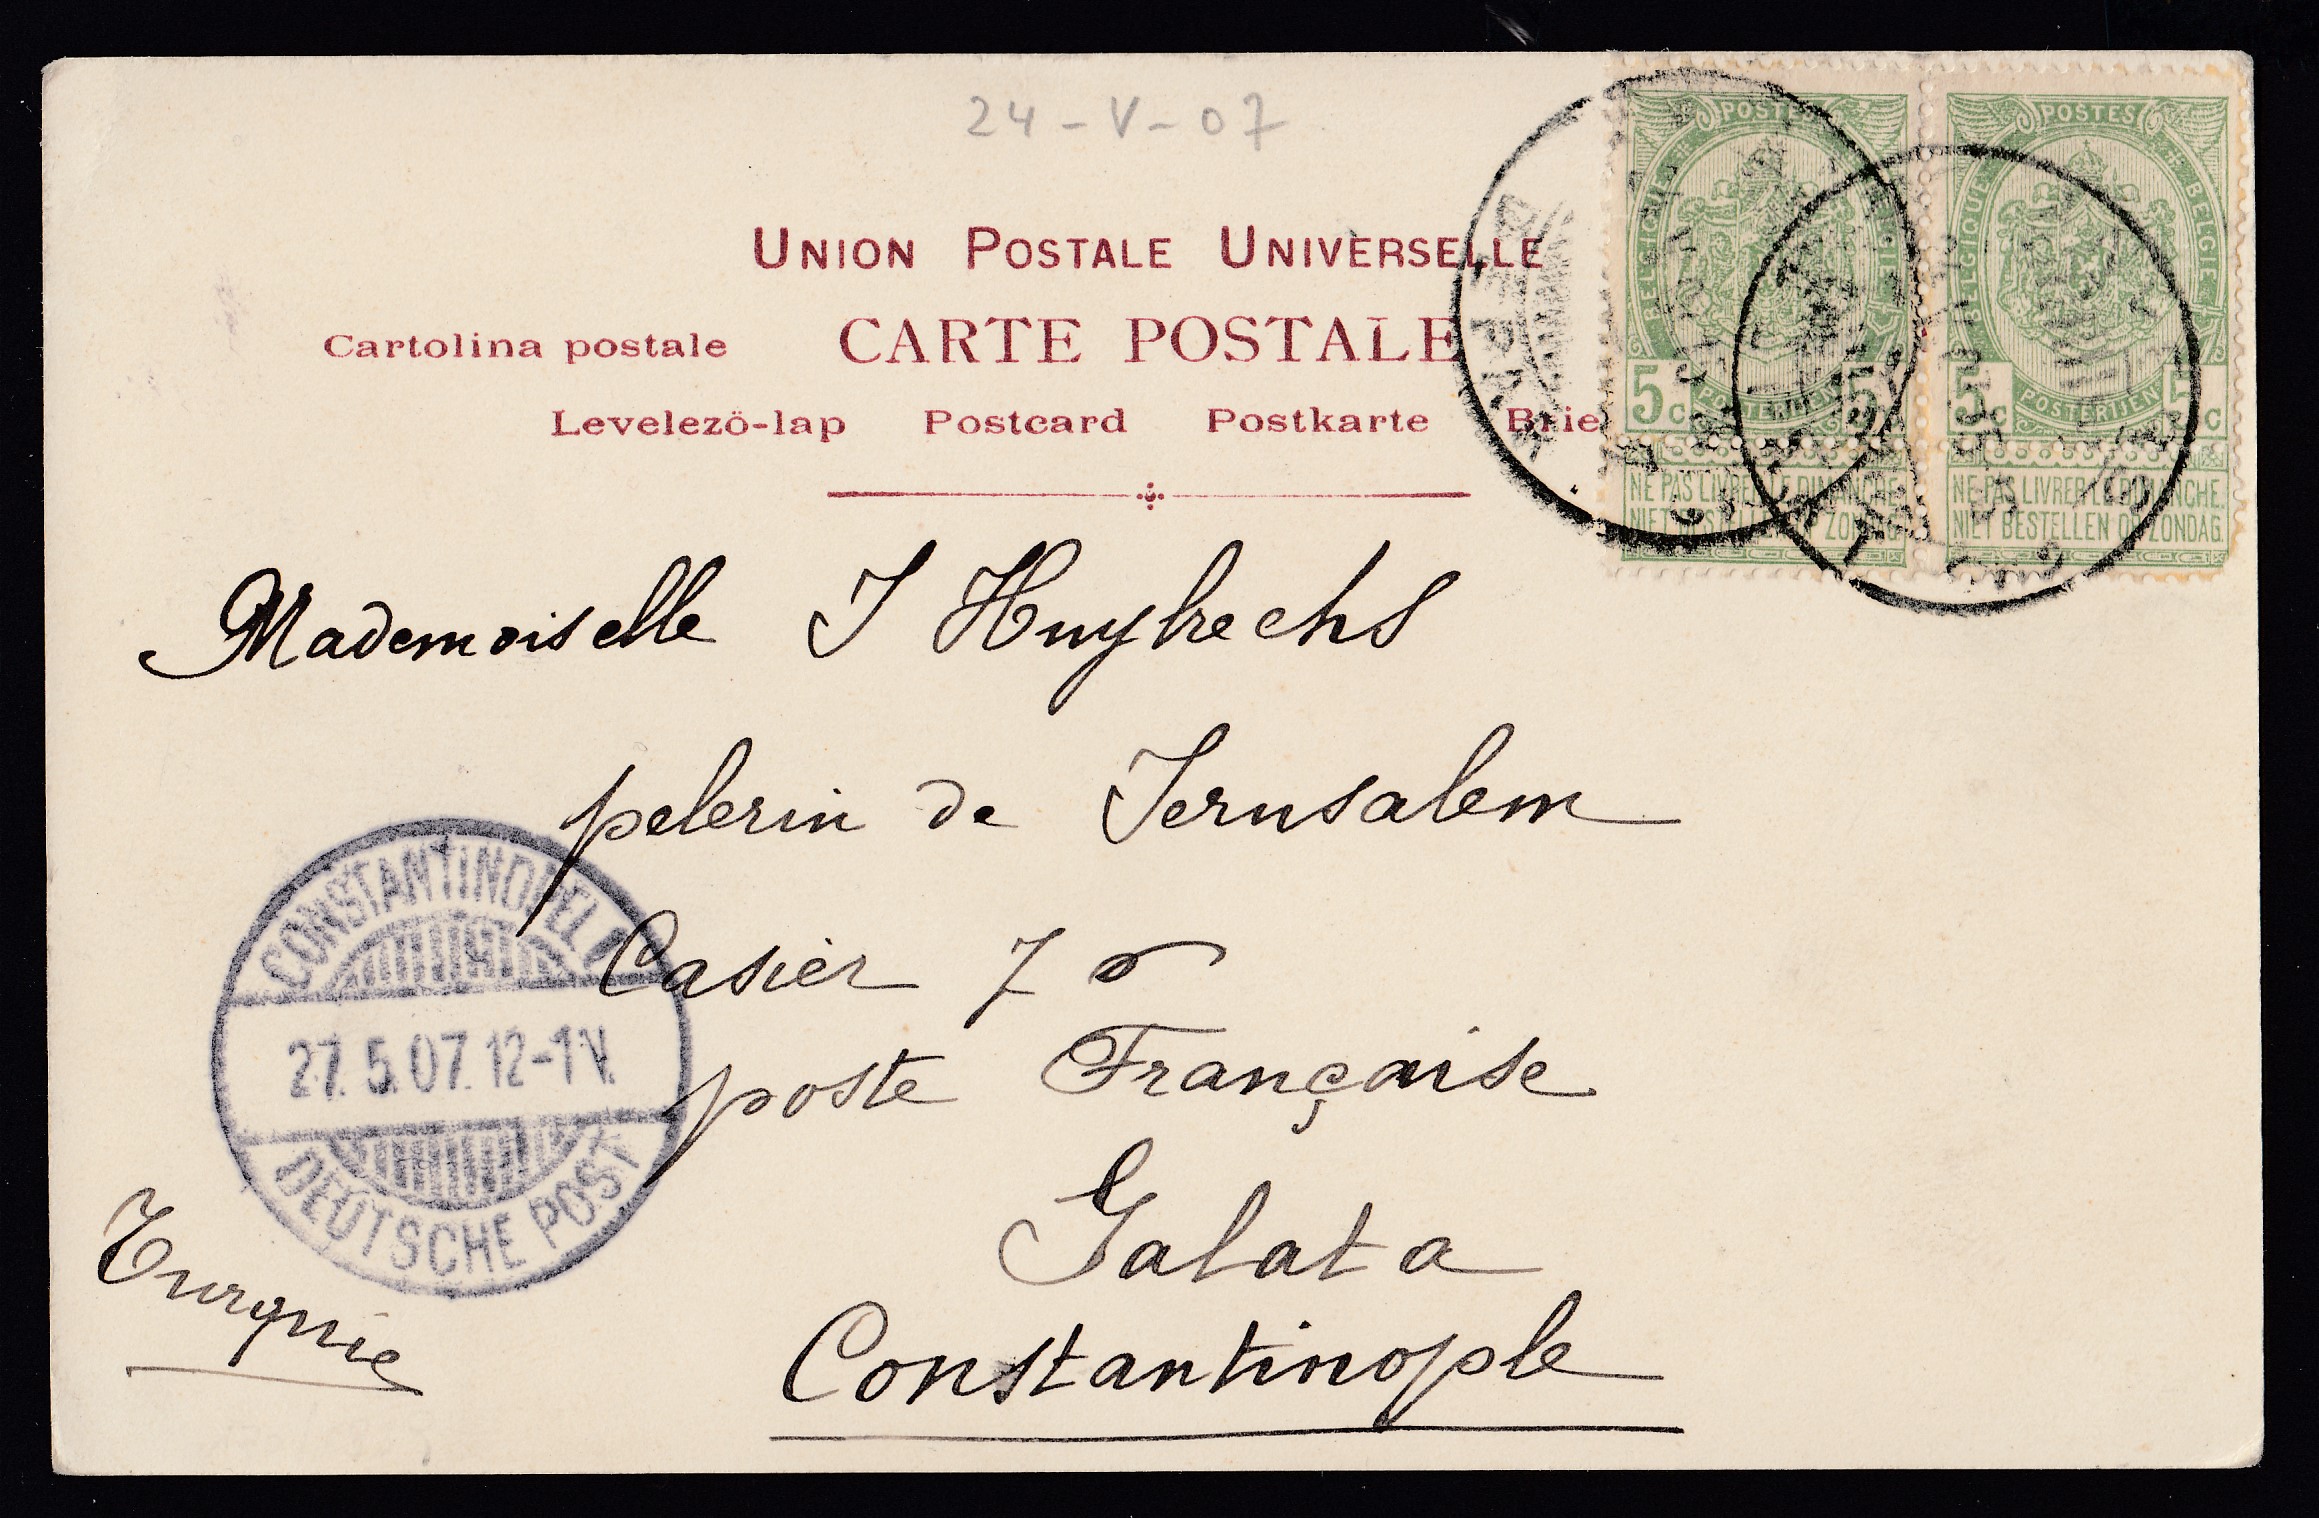 24-V-07
UNION POSTALE UNIVERSELLE
Cartolina postale CARTE POSTALE
Levelezö-lap Postcard Postkarte Brie
POSTES
BELGIQUE BELGIE
5c 5c
POSTERIJEN
NE PAS LIVRER LE DIMANCHE.
NIET BESTELLEN OP ZONDAG.
POSTES
BELGIQUE BELGIE
5c 5c
POSTERIJEN
NE PAS LIVRER LE DIMANCHE.
NIET BESTELLEN OP ZONDAG.
Mademoiselle J Huybrechs
pelerin de Jerusalem
Casier 7
poste Française
Galata
Constantinople
Turquie
CONSTANTINOPEL 1
27.5.07.12-1V.
DEUTSCHE POST